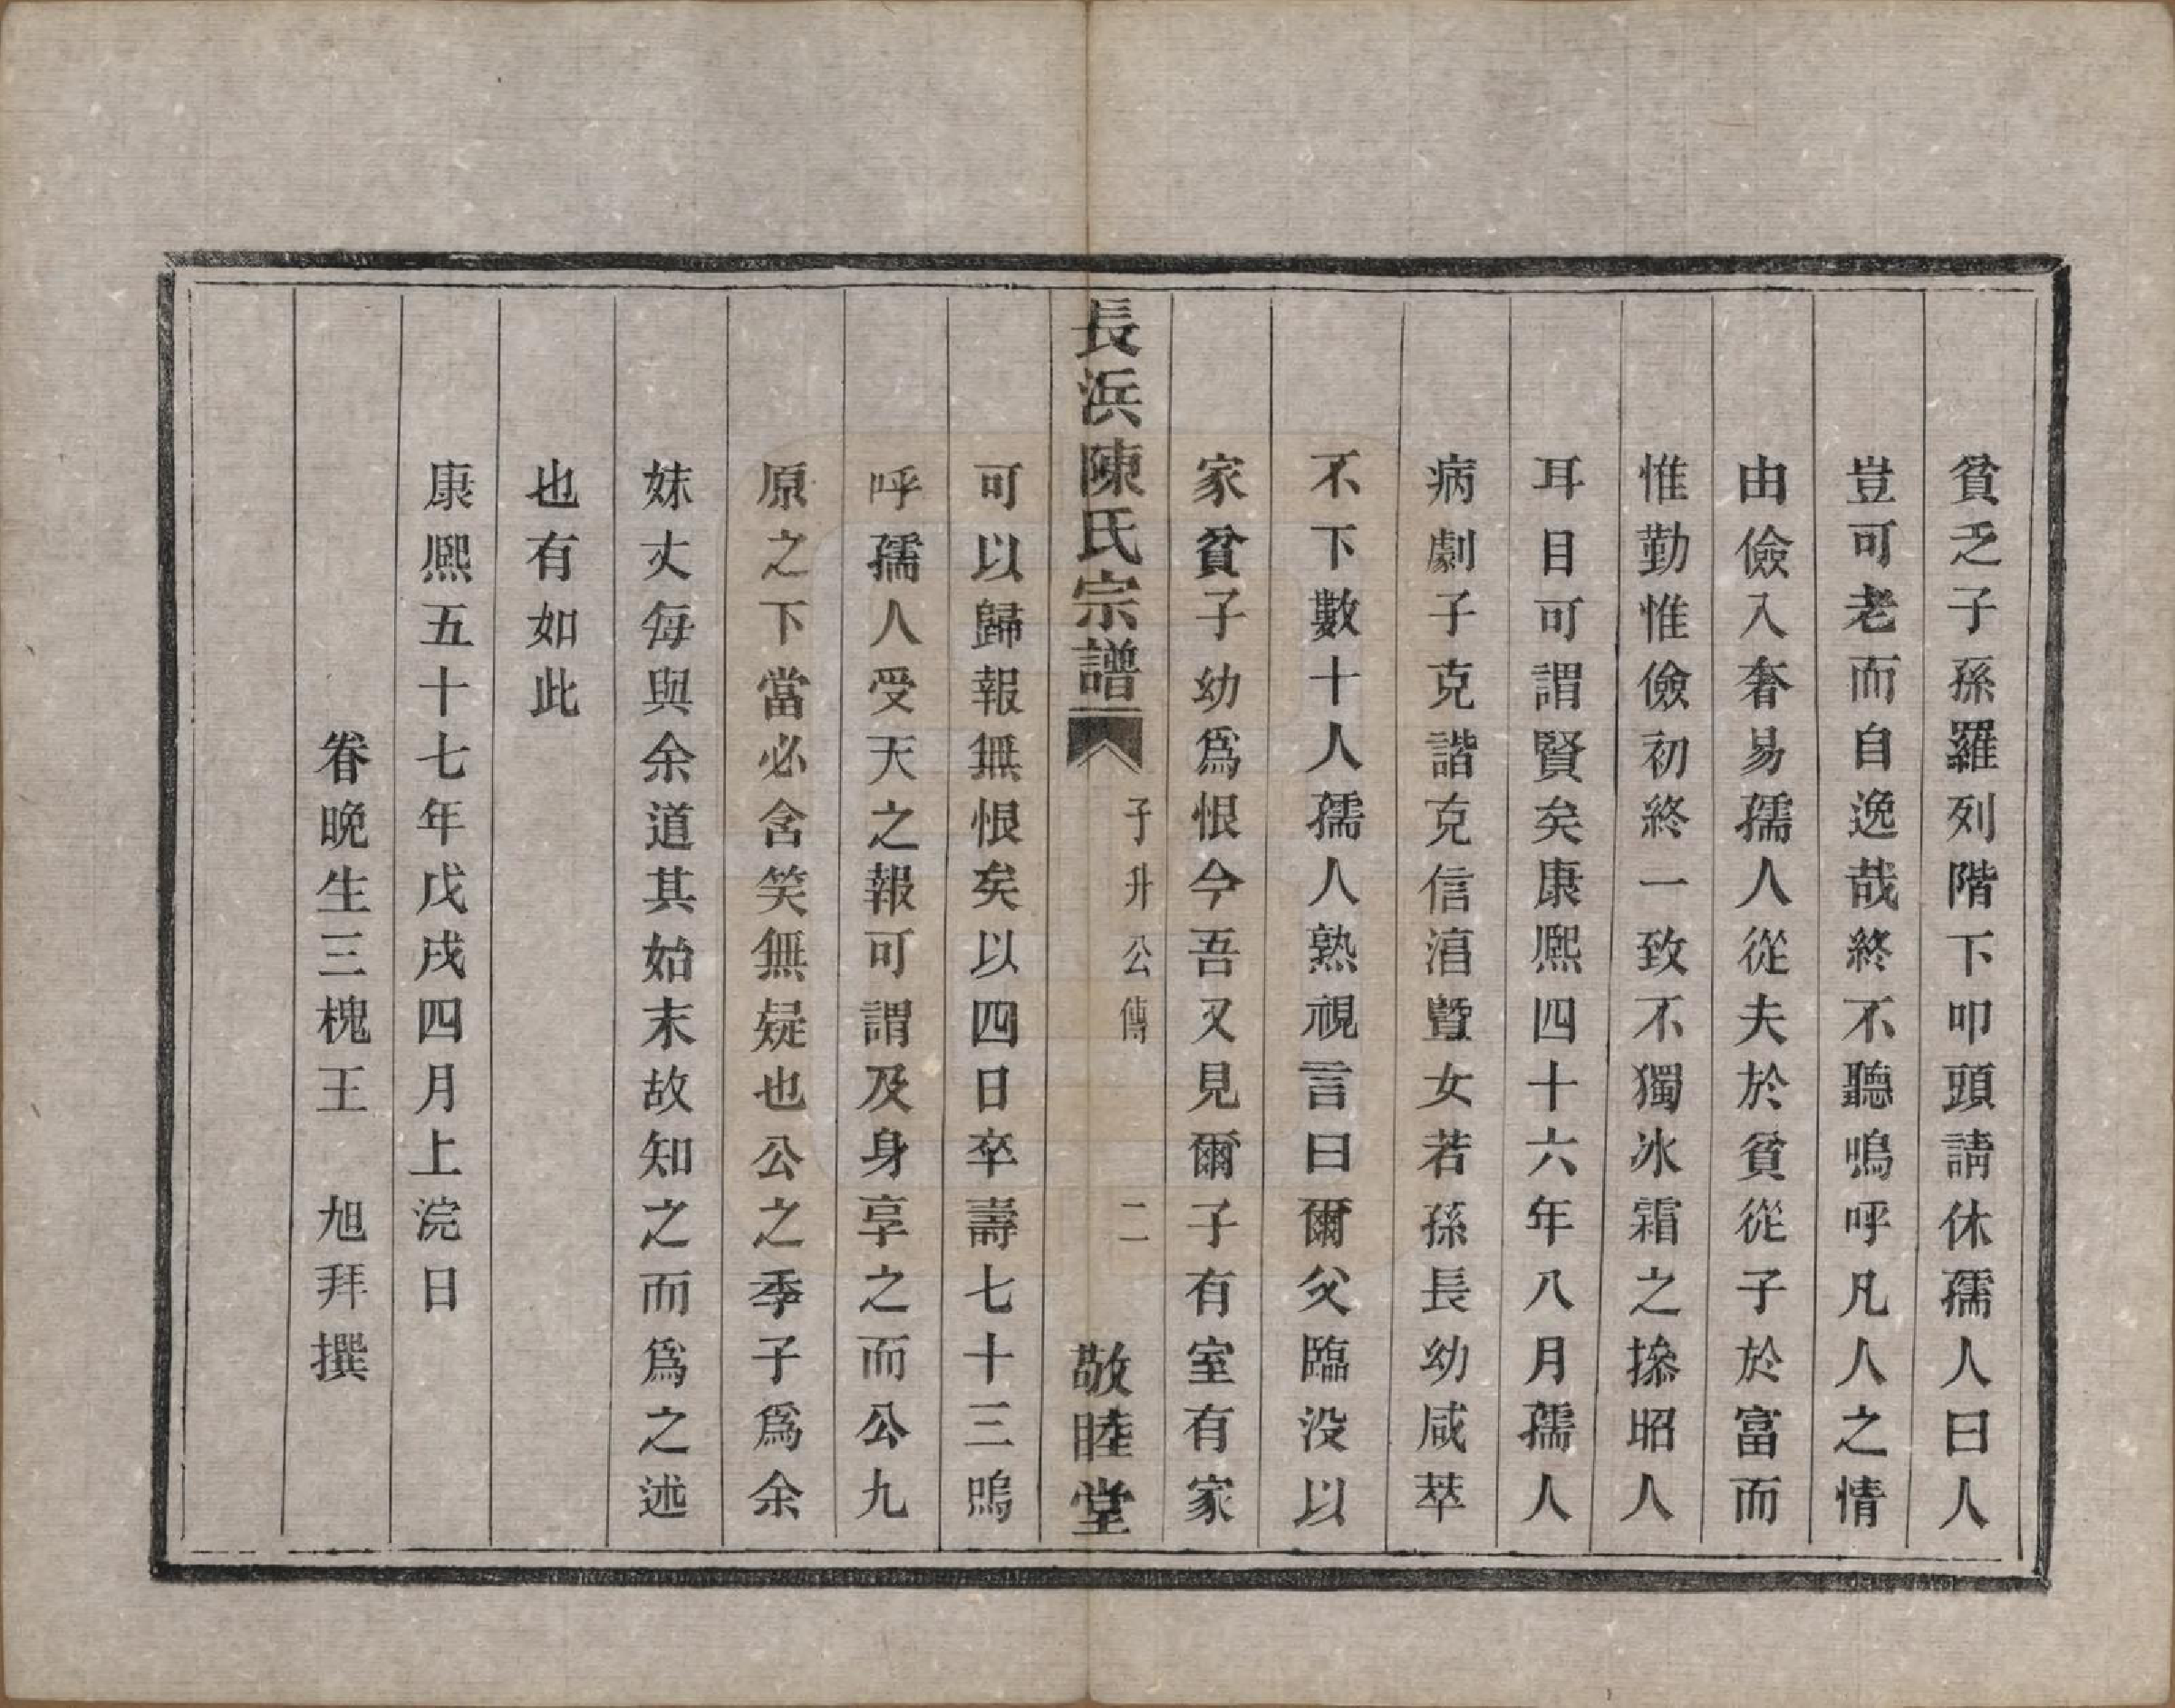 貧乏子孫羅列階下叩頭請休孺人曰人
豈可老而自逸哉終不聽嗚呼凡人之情
由儉入奢易孺人從夫於貧從子於富而
惟勤惟儉初終一致不獨冰霜之摻昭人
耳目可謂賢矣康熙四十六年八月孺人
病劇子克諧克信洎暨女若孫長幼咸萃
不下數十人孺人熟視言曰爾父臨没以
家貧子幼爲恨今吾又見爾子有室有家
長浜陳氏宗譜 子升公傳 二 敬睦堂
可以歸報無恨矣以四日卒壽七十三嗚
呼孺人受天之報可謂及身享之而公九
原之下當必含笑無疑也公之季子爲余
妹丈每與余道其始末故知之而爲之述
也有如此
康熙五十七年戊戌四月上浣日
眷晚生三槐王 旭拜撰